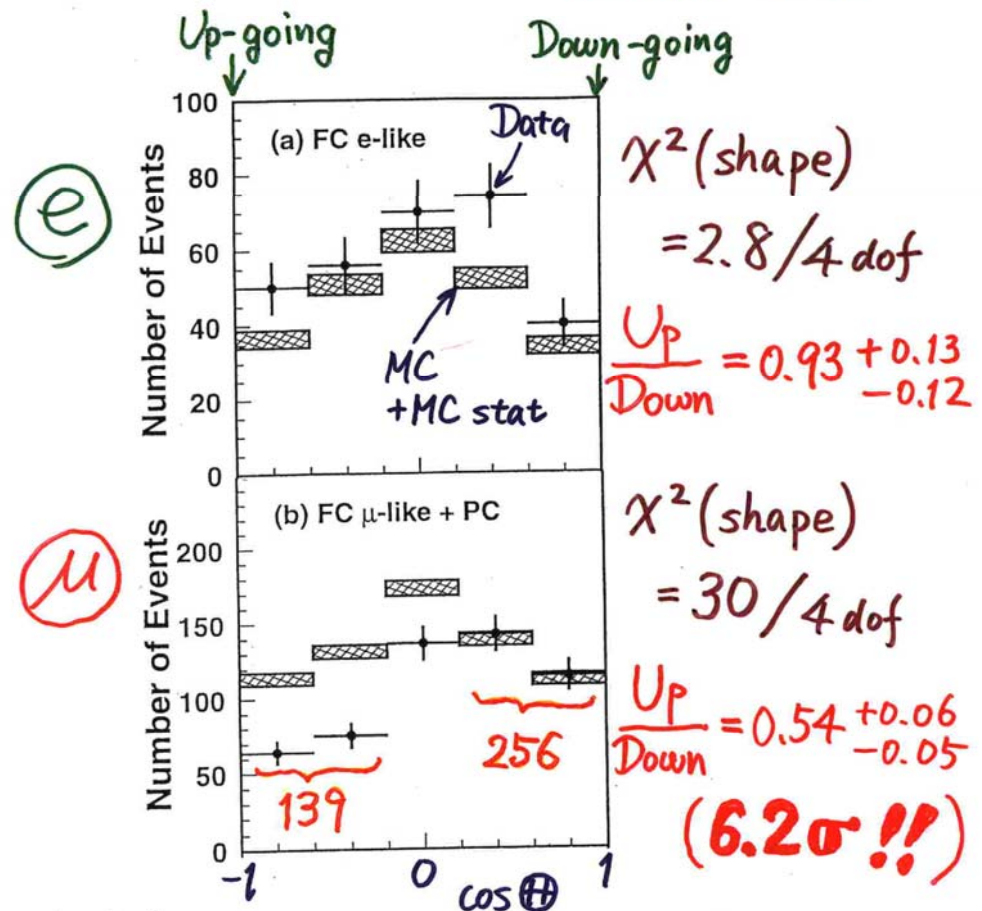 Up-going
Down-going
e
100
80
60
40
20
0
Number of Events
(a) FC e-like
Data
MC
+MC stat
χ² (shape)
= 2.8/4 dof
Up/Down = 0.93 +0.13 -0.12
μ
200
150
100
50
0
Number of Events
(b) FC μ-like + PC
139
256
-1 0 1
cos Θ
χ² (shape)
= 30/4 dof
Up/Down = 0.54 +0.06 -0.05
(6.2σ !!)